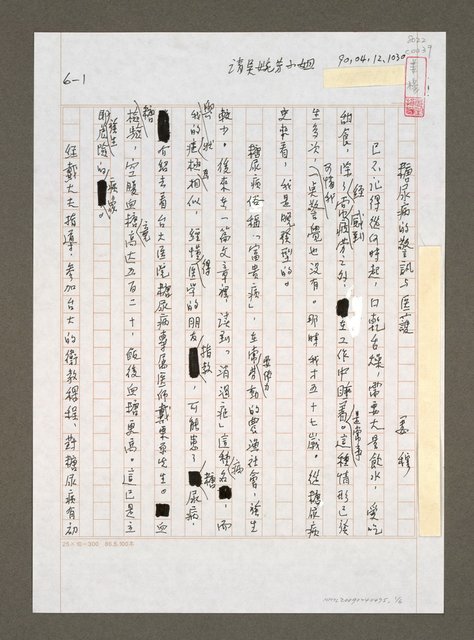 8022
C0039
90.04.12.1030
請吳婉芳小姐
6-1
糖尿病的警訊與医護
姜穆
已不記得從何時起,口乾舌燥,常要大量飲水,愛吃
甜食,除了經常感到
在工作中睡著。這種情形已發
生多次,可惜我一無警覺也沒有。那時我才五十七歲。從糖尿病
史來看,我是晚發型的。
糖尿病俗稱「富貴病」,在需要勞動的農漁社會,發生
較少。後來在一篇文章裡,談到「消渴症」這種病名,而
與我的症狀極相似,經懂得医学的朋友指教,可能患了糖尿病,
介紹去看台大医院糖尿病專屬医師戴東原先生。血
糖檢驗,空腹血糖竟高達五百二十,飯後血糖更高。這已是立
即發生危險的病象。
經戴大夫指導,參加台大的衛教課程,對糖尿病有初
25×10=300 86.5.100本